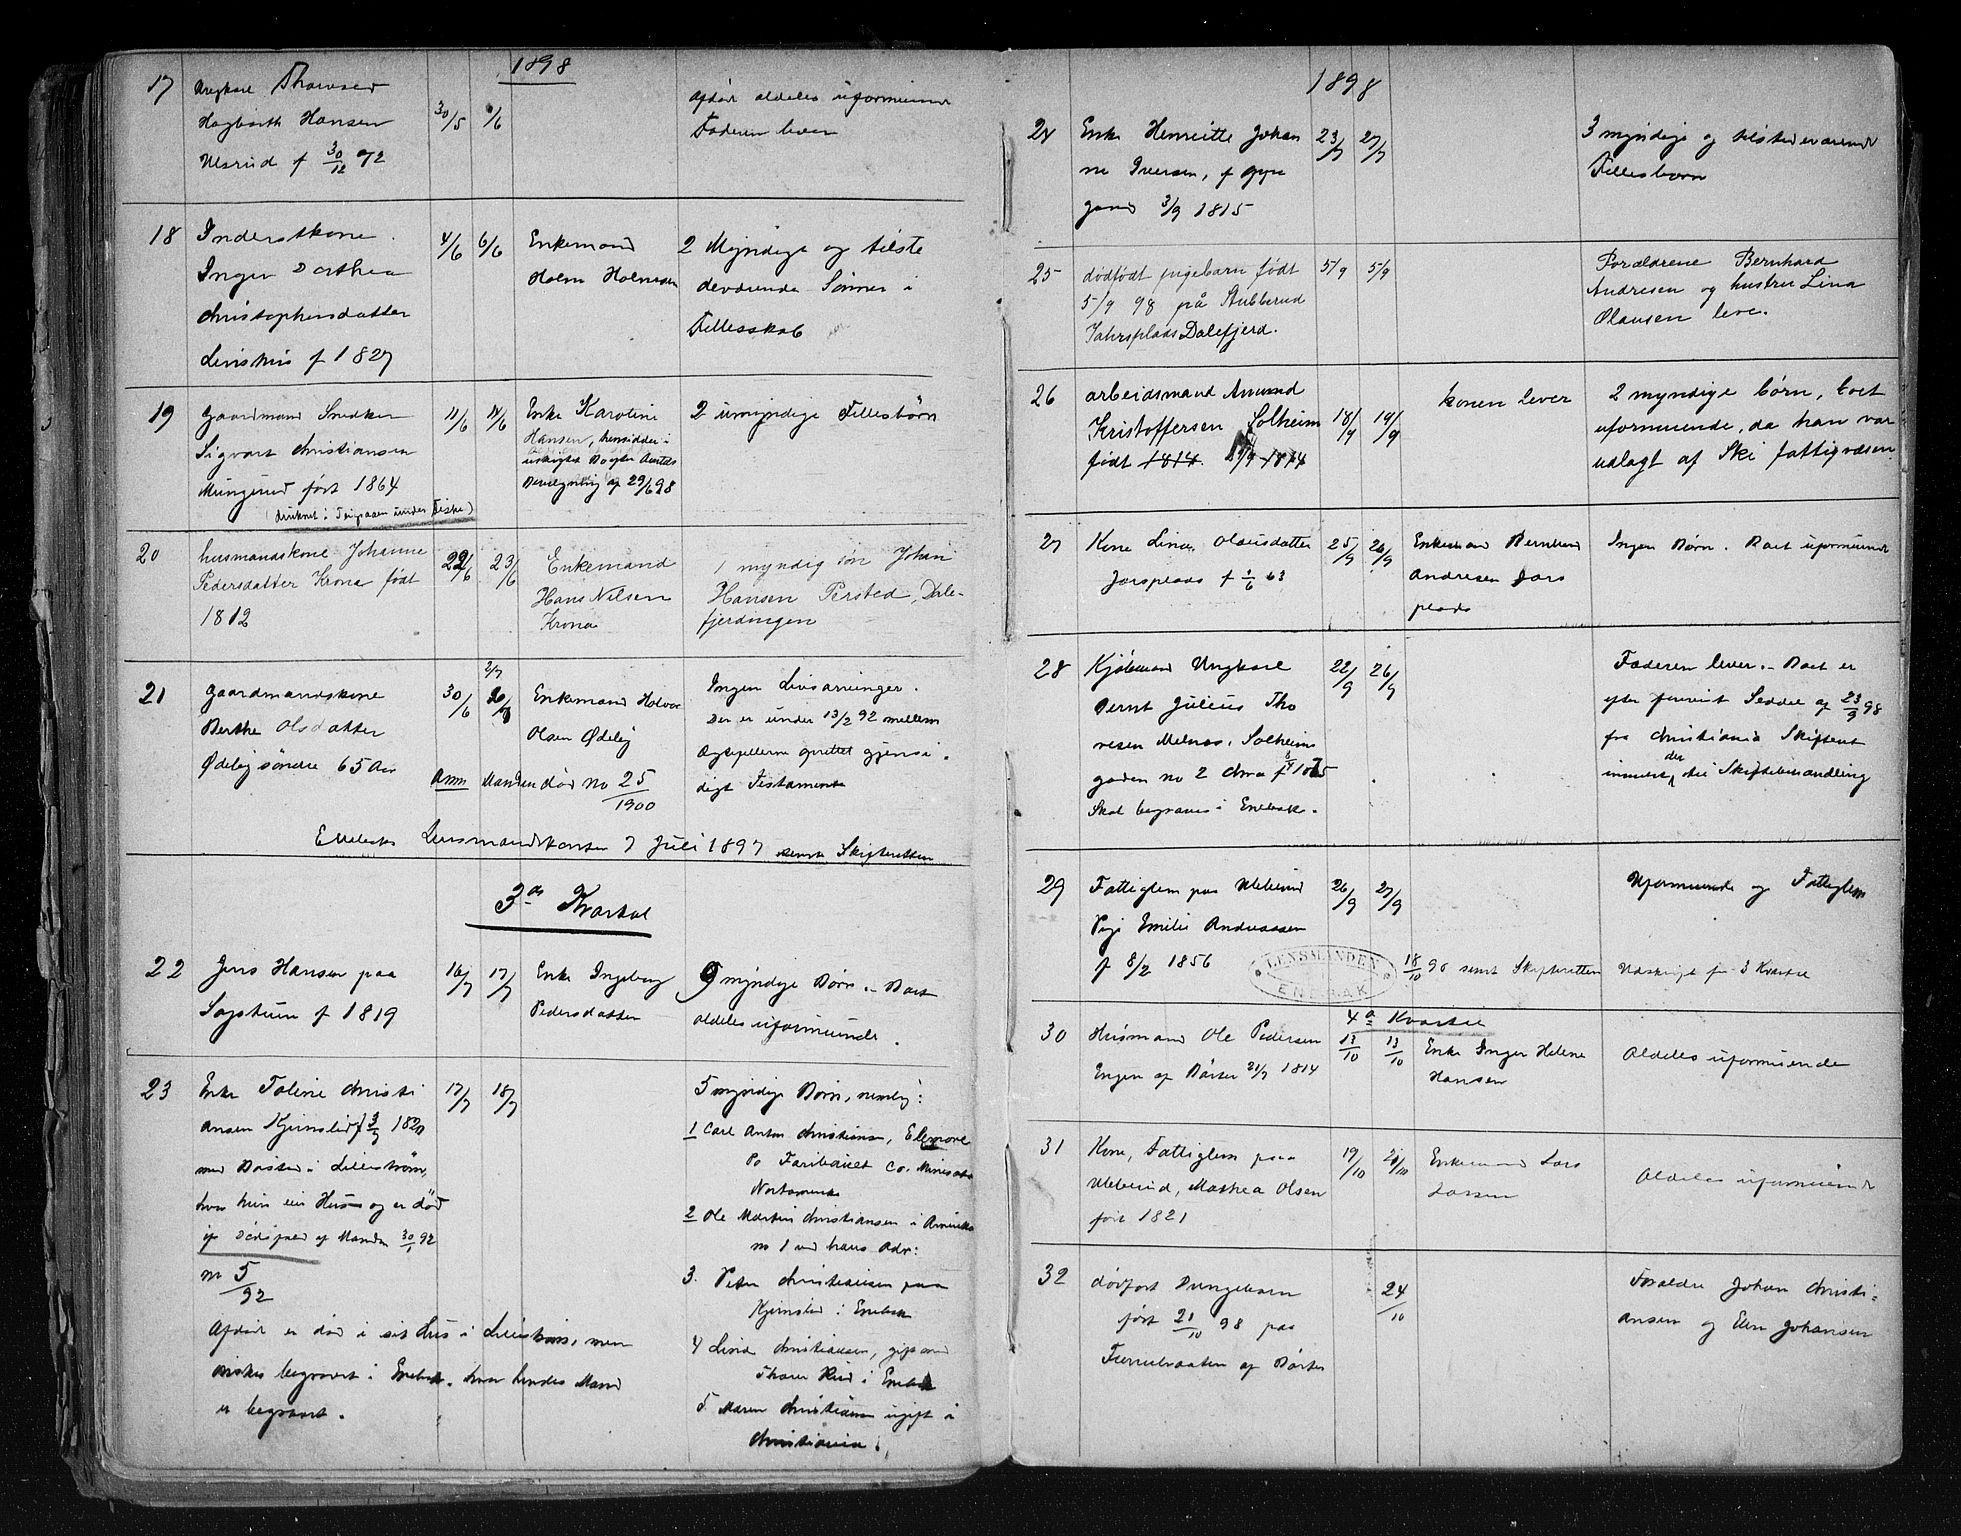 1898
17 Ungkarl Thorvald 30/5 /6 Afdøde aldeles uformuende
Hagbarth Hansen Faderen lever
Ulsrud f 30/12 72
18 Inderstkone 4/6 6/6 Enkemand 2 Myndige og tilste
Inger Dorthea Holm Holmsen deværende Sønner i
Christophersdatter Fellesskab
f 1827
19 Gaardmand Snedker 11/6 /6 Enke Karoline 2 umyndige Fellesbørn
Sigvart Christiansen Hansen, hensidder i
Mungerud født 1864 uskiftet Bo efter Amtets
Bevilgning af 29/6 98
(druknet i under Fiske)
20 husmandskone Johanne 22/6 23/6 Enkemand 1 myndig søn Johan
Pedersdatter Krona født Hans Nilsen Hansen Persted, Dale-
1812 Krona fjerdingen
2/7
21 Gaardmandskone 30/6 Enkemand Halvor Ingen Livsarvinger.
Berthe Olsdatter Olsen Ødeby Der er under 13/2 92 mellem
Ødeby søndre 65 Aar Ægtefellerne oprettet gjensi
Anm Manden død No 25/1900 digt Testamente
Enebaks Lensmandskontor 7 Juli 1897 sendt Skifteretten
3die Kvartal
22 Jens Hansen paa 16/7 17/7 Enke Ingeborg 9 myndige Børn. Boet
f 1819 Pedersdatter aldeles uformuende.
23 Enke Toline Christi 17/7 18/7 5 myndige Børn, nemlig:
ansen Kjernslid f 3/7 182 1 Carl Anton Christiansen,
med Bosted i Lillestrøm, Po Faribault Co. Minesota
hvor hun eier Hus og er død Nortamerika
Manden 30/1 92 2 Ole Martin Christiansen i Amerika
no 5/92 no 1 ved hans Adr:
3. Peter Christiansen paa
Kjernslid i Enebak
Afdøde er død i sit Hus i Lillestrøm, men 4 Lina Christiansen, gift med
ønskes begravet i Enebak, hvor hendes Mand Thorer Rud i Enebak
er begravet. 5. Maren Christiansen ugift i
Christiania.
1898
24 Enke Henriette Johan 23/7 27/7 3 myndige og tilstedeværende
ne Iversen, f Oppe Fellesbørn
gaard 3/9 1815
25 dødfødt pigebarn født 5/9 5/9 Forældrene Bernhard
5/9 98 på Stubberud Andresen og hustru Lina
Jahrsplads Dalefjerd. Olausen leve.
26 arbeidsmand Amund konen lever 2 myndige børn, boet
Kristoffersen Solheim 18/9 19/9 uformuende, da han var
født 1814. 1814 udlagt af Ski fattigvæsen.
27 Kone Lina Olausdatter 25/9 26/9 Enkemand Bernhard Ingen Børn. Boet uformuende
Jarsplads f 1/6 63 Andresen Jars
plads
28 Kjøbmand Ungkarl 22/9 26/9 Faderen lever. Boet er
Bernt Julius Tho efter forevist Seddel af 23/9 98
resen Melnæs, Solheims fra Christiania Skifteret
gaden no 2 Chra f 1875 der til Skiftebehandling
Skal begraves i Enebak.
29 Fattiglem paa Ulverud 26/9 27/9 Uformuende og Fattiglem
Pige Emilie Andreassen
f 8/2 1856 18/10 98 sendt Skifteretten Udskrift for 3 Kvartal
LENSMANDEN
ENEBAK
4de Kvartal
30 Husmand Ole Pedersen 13/10 13/10 Enke Inger Helene Aldeles uformuende
Engen af Børter 21/7 1814 Hansen
31 Kone, Fattiglem paa 19/10 /10 Enkemand Lars Aldeles uformuende
Ulverud, Mathea Olsen Larsen
født 1821
32 dødfødt Drengebarn 24/10 Forældre Johan Christi-
født 21/10 98 paa ansen og Elen Johansen
af Børter